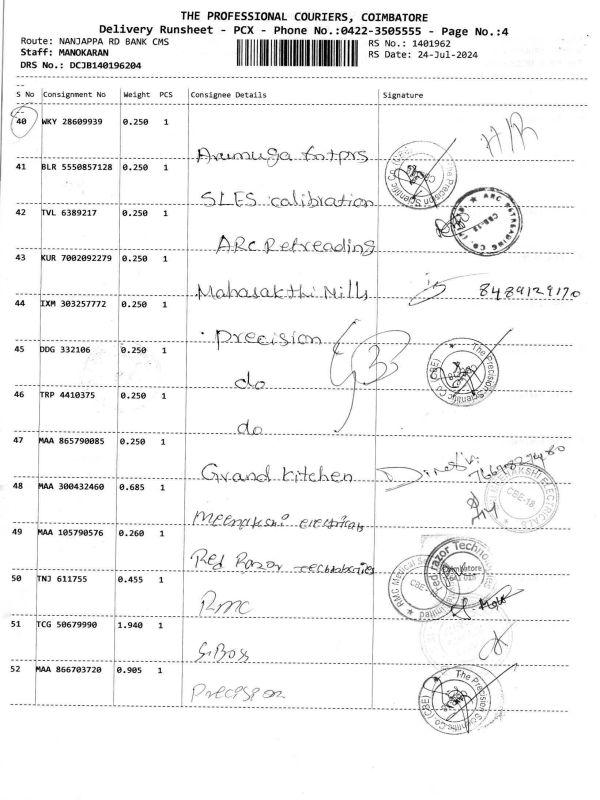 THE PROFESSIONAL COURIERS, COIMBATORE
Delivery Runsheet - PCX - Phone No.:0422-3505555 - Page No.:4
Route: NANJAPPA RD BANK CMS
RS No.: 1401962
Staff: MANOKARAN
RS Date: 24-Jul-2024
DRS No.: DCJB140196204
S No Consignment No Weight PCS Consignee Details Signature
40 WKY 28609939 0.250 1
Arumuga Entprs
41 BLR 5550857128 0.250 1
SLES calibration
42 TVL 6389217 0.250 1
ARC Retreading
43 KUR 7002092279 0.250 1
Mahasakthi Mills 8489129170
44 IXM 303257772 0.250 1
Precision
45 DDG 332106 0.250 1
do
46 TRP 4410375 0.250 1
do
47 MAA 865790085 0.250 1
Grand kitchen
48 MAA 300432460 0.685 1
Meenakshi electricals
49 MAA 105790576 0.260 1
Red Razor technologies
50 TNJ 611755 0.455 1
RMC
51 TCG 50679990 1.940 1
52 MAA 866703720 0.905 1
Precision
The Precision Scientific Co (CBE)
ARC RETREADING CO.
CBE-18
The Precision Scientific Co (CBE)
CBE-18
Red razor Techno
Coimbatore
RMC Medical
The Precision Scientific Co (CBE)